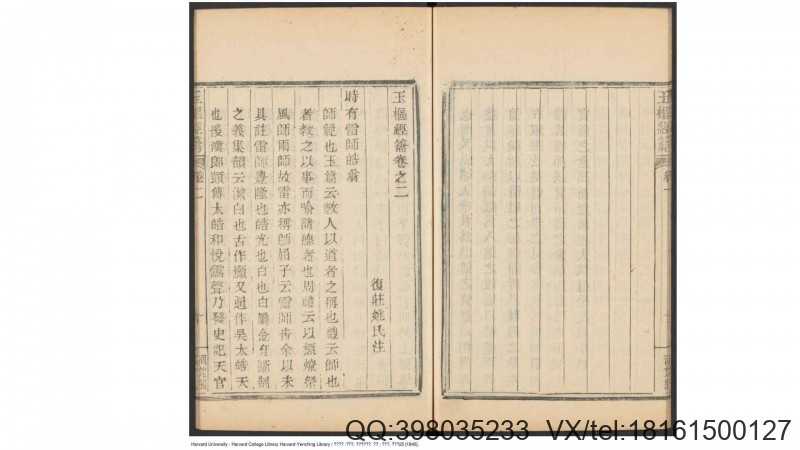 玉樞經籥卷之二
復莊姚氏注
時有雷師皓翁
師範也玉篇云教人以道者之稱也禮云師也
者教之以事而喻諸德者也周禮云以槱燎祭
風師雨師故雷亦稱師屈子云雷師告余以未
具註雷師豐隆也皓光也白也
之義集韻云潔白也古作顥又通作昊太皓天
也後漢郎顗傳太皓和悅雷聲乃發史記天官
玉樞經籥 卷二
玉樞經籥 卷一
Harvard University - Harvard College Library Harvard-Yenching Library / ???? :???. ??????. ?? : ???, ??
QQ:398035233 VX/tel:18161500127